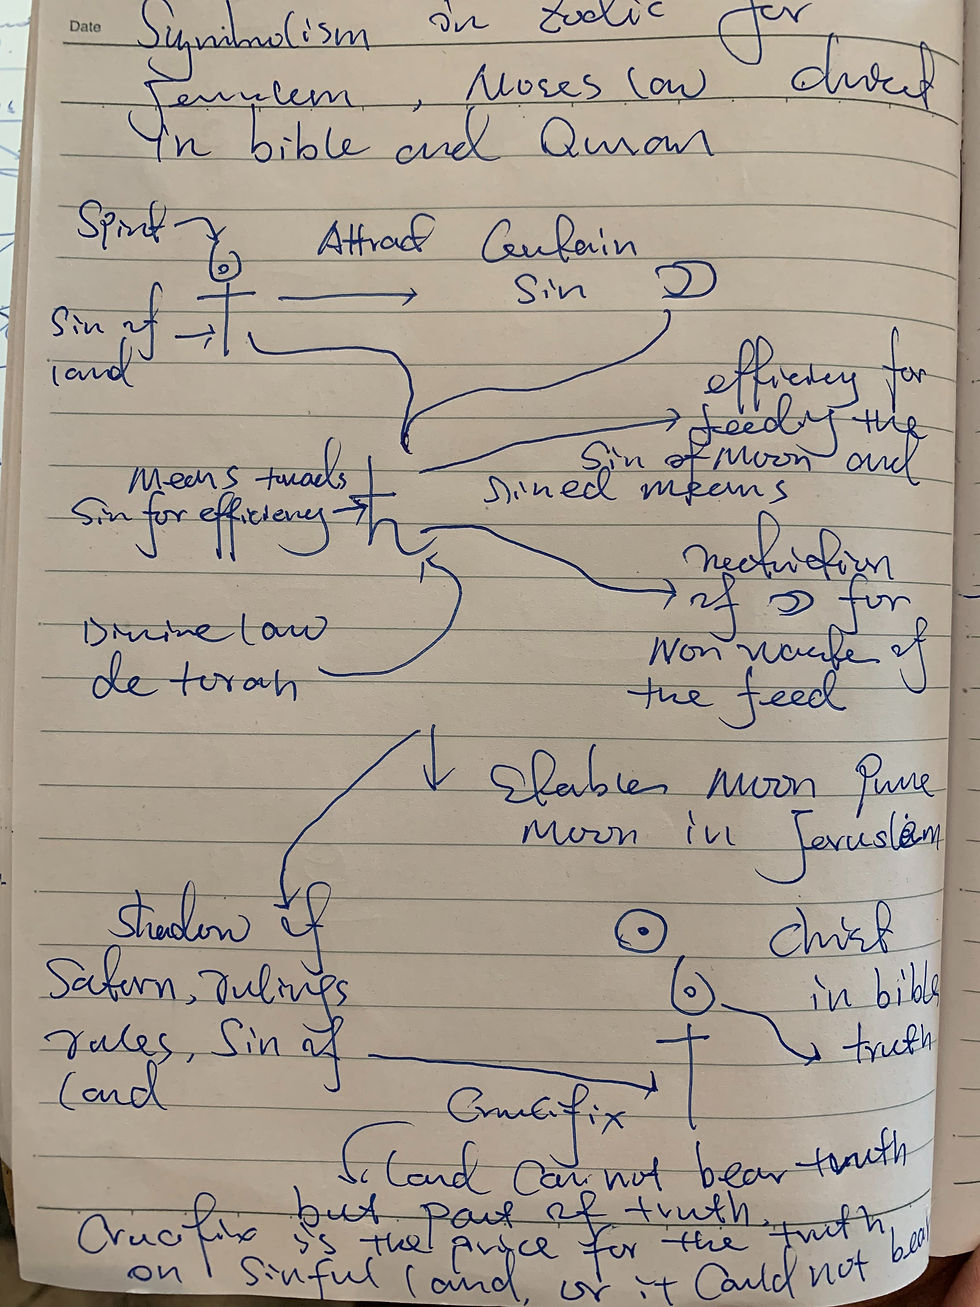 Date
Symbolism in zodic for
Jerulem, Moses law christ
in bible and Quran
Spirit
Attract Certain
Sin
Sin of
land
efficiency for
feeding the
Sin of Moon and
Sined means
Means tuads
Sin for efficiency
of for
Non of
the feed
Divine law
de torah
Moon Pure
Moon in Jeruslem
Shadow of
Saturn, rulings
rules, Sin of
land
christ
in bible
truth
Crucifix
land Can not bear truth
but part of truth.
Crucifix is the price for the truth
on Sinful land, or it Could not bear